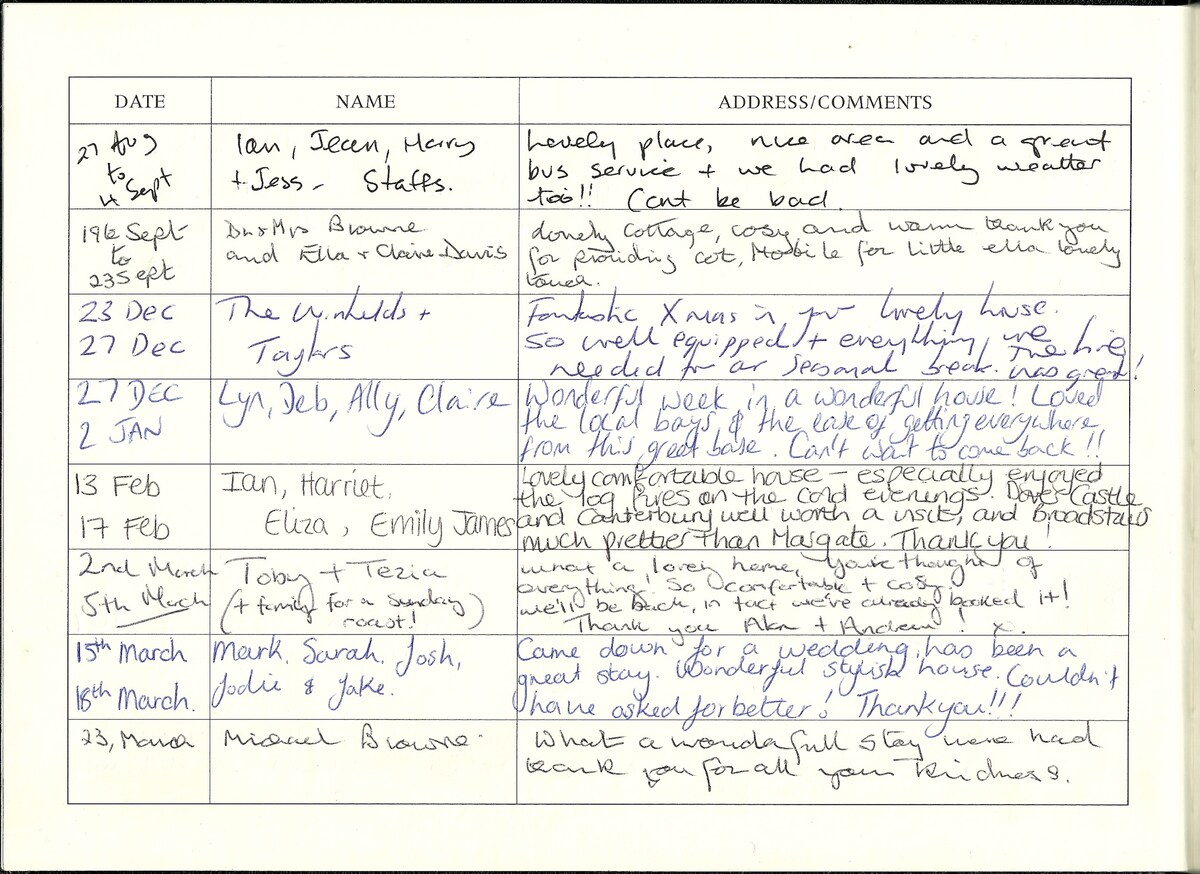 DATE NAME ADDRESS/COMMENTS
27 Aug
to
4 Sept
Ian, Jean, Harry
+ Jess - Staffs.
Lovely place, nice area and a great
bus service + we had lovely weather
too!! Cant be bad.
19th Sept
to
23 Sept
Dr & Mrs Browne
and Ella + Claire Davis
lovely cottage, cosy and warm thank you
for providing cot, Mobile for little ella lovely
touch.
23 Dec
27 Dec
The Winfields +
Taylors
Fantastic Xmas in your lovely house.
So well equipped + everything we
needed for our seasonal break. The fire
was great!
27 DEC
2 JAN
Lyn, Deb, Ally, Claire
Wonderful week in a wonderful house! Loved
the local bays, & the ease of getting everywhere
from this great base. Can't wait to come back!!
13 Feb
17 Feb
Ian, Harriet,
Eliza, Emily James
Lovely comfortable house - especially enjoyed
the log fires on the cold evenings. Dover Castle
and Canterbury well worth a visit, and Broadstairs
much prettier than Margate. Thank you!
2nd March
5th March
Toby + Tezia
(+ family for a sunday
roast!)
What a lovely home, You've thought of
everything! So comfortable + cosy
we'll be back, in fact we've already booked it!
Thank you Alan + Andrew! x.
15th March
18th March.
Mark, Sarah, Josh,
Jodie & Jake.
Came down for a wedding, has been a
great stay. Wonderful stylish house. Couldn't
have asked for better! Thankyou!!!
23, March
Michael Browne.
What a wonderfull stay were had
thank you for all your kindness.